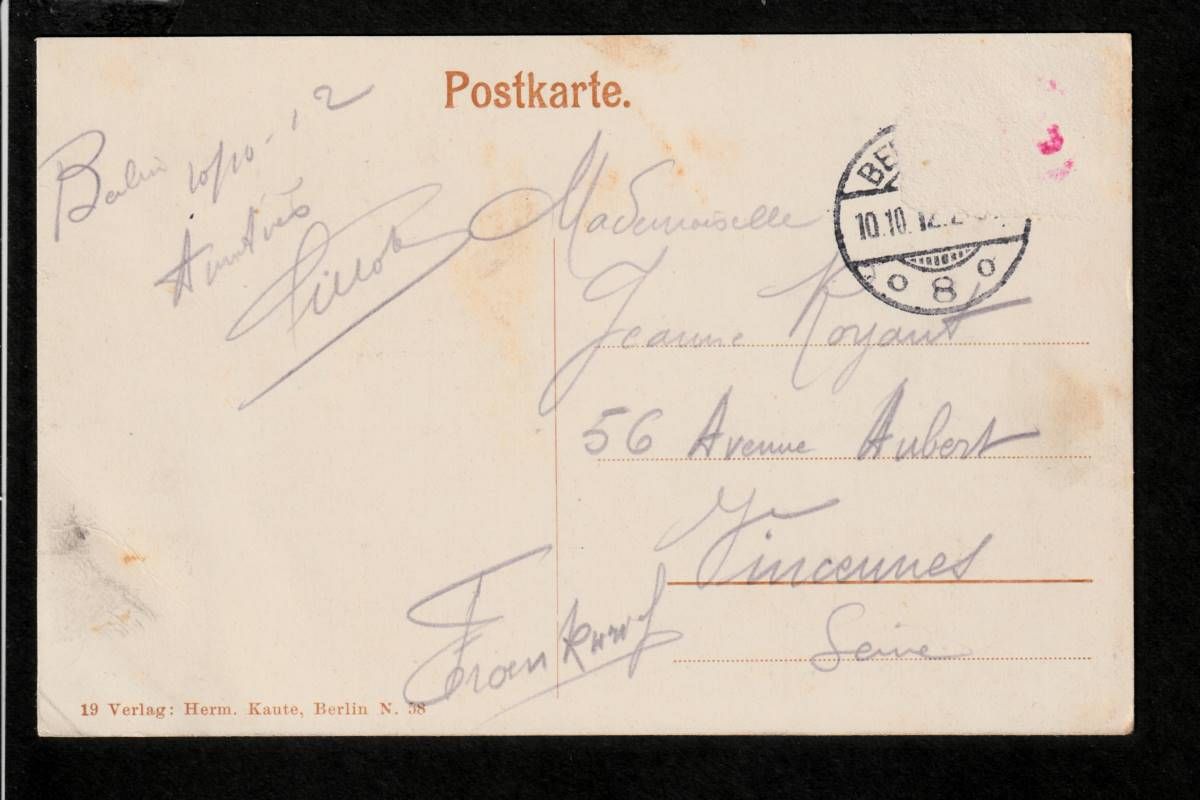 Postkarte.
Berlin 10/10-12
Amitiés
Mademoiselle
Jeanne Royant
56 Avenue Aubert
Vincennes
Seine
10.10.12.
8
19 Verlag: Herm. Kaute, Berlin N. 58